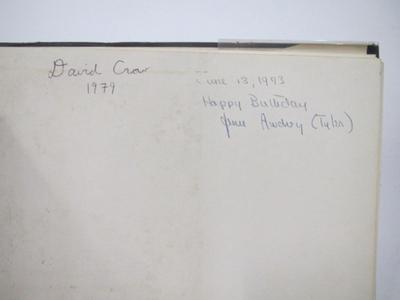 David Crow
1979
June 13, 1973
Happy Birthday
June Audrey (Tyler)